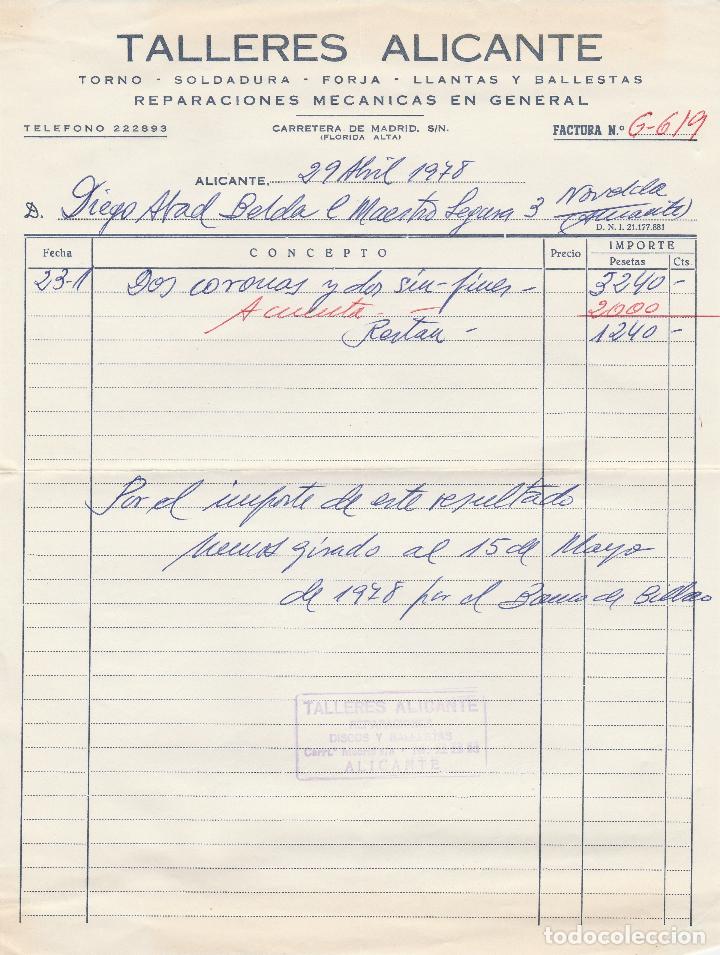 TALLERES ALICANTE
TORNO - SOLDADURA - FORJA - LLANTAS Y BALLESTAS
REPARACIONES MECANICAS EN GENERAL
TELEFONO 222893
CARRETERA DE MADRID. S/N.
(FLORIDA ALTA)
FACTURA N.º G-619
ALICANTE, 29 Abril 1978
D. Diego Abad Belda C Maestro Segura 3 Novelda
(Alicante)
D. N. I. 21.177.881
Fecha CONCEPTO Precio IMPORTE
Pesetas Cts.
23-1 Dos coronas y dos sin-fines - 3240 -
A cuenta - 2000
Restan - 1240 -
Por el importe de este resultado
hemos girado al 15 de Mayo
de 1978 por el Banco de Bilbao
TALLERES ALICANTE
DISCOS Y BALLESTAS
ALICANTE
todocoleccion.net